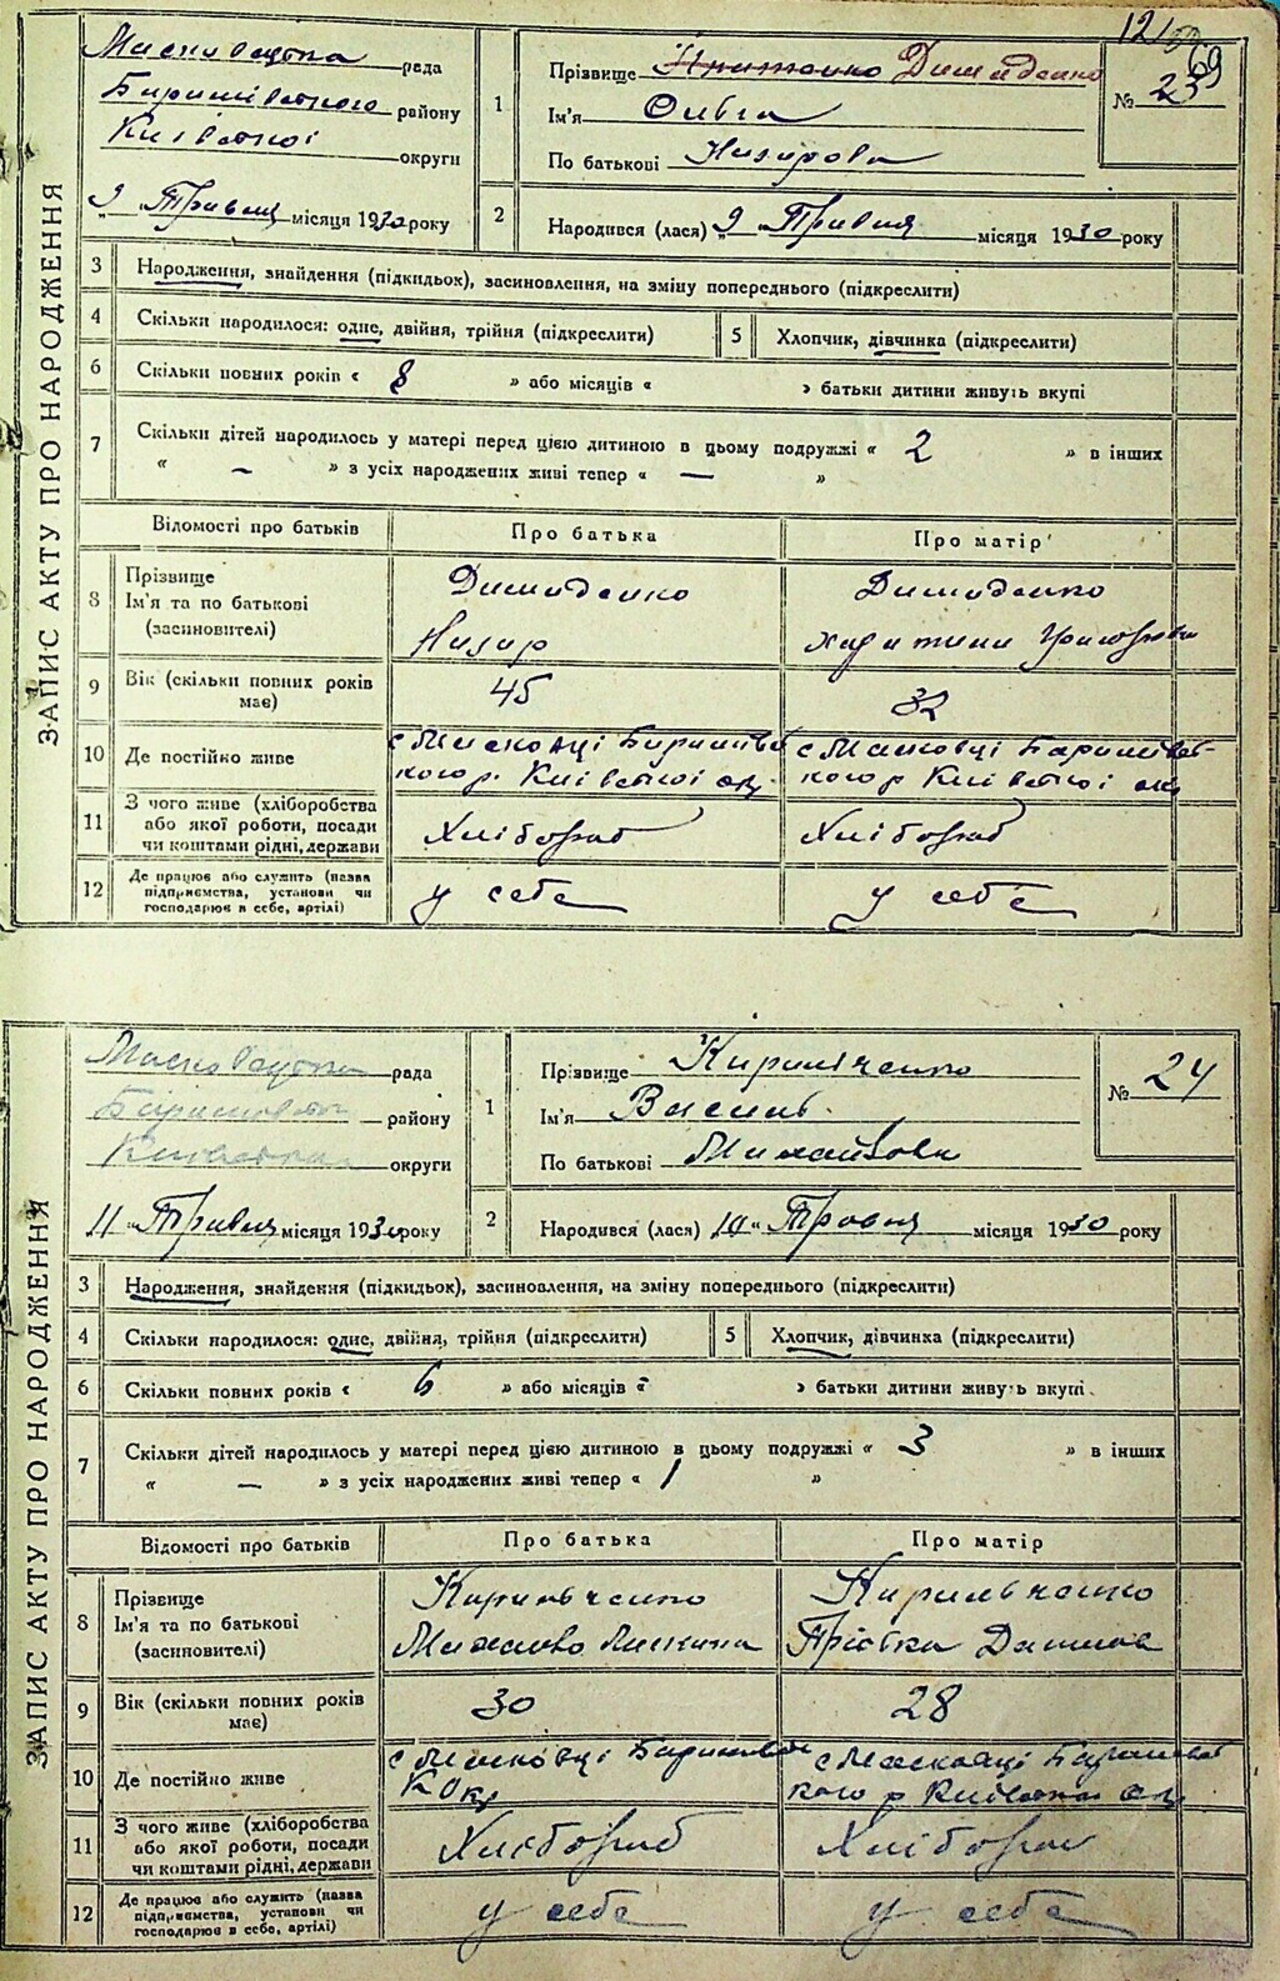 12
69
ЗАПИС АКТУ ПРО НАРОДЖЕННЯ
рада
району
Київської округи
9 Травня місяця 1930 року
1
Прізвище Димиденко
Ім'я Ольга
По батькові Назарова
№ 23
2 Народився (лася) 9 Травня місяця 1930 року
3 Народження, знайдення (підкидьок), засиновлення, на зміну попереднього (підкреслити)
4 Скільки народилося: одне, двійня, трійня (підкреслити) 5 Хлопчик, дівчинка (підкреслити)
6 Скільки повних років « 8 » або місяців « » батьки дитини живуть вкупі
7 Скільки дітей народилось у матері перед цією дитиною в цьому подружжі « 2 » в інших
« – » з усіх народжених живі тепер « — »
Відомості про батьків Про батька Про матір
8 Прізвище
Ім'я та по батькові
(засиновителі)
Димиденко Димиденко
Назар
9 Вік (скільки повних років має) 45 32
10 Де постійно живе
с Масковці с Масковці
кого р. Київської окр. кого р Київської окр
11 З чого живе (хліборобства
або якої роботи, посади
чи коштами рідні, держави
Хлібороб Хлібороб
12 Де працює або служить (назва
підприємства, установи чи
господарює в себе, артілі)
у себе у себе
ЗАПИС АКТУ ПРО НАРОДЖЕННЯ
рада
району
округи
11 " Травня місяця 1930 року
1
Прізвище Кирильченко
Ім'я Василь
По батькові Михайлови
№ 24
2 Народився (лася) 10 " Травня місяця 1930 року
3 Народження, знайдення (підкидьок), засиновлення, на зміну попереднього (підкреслити)
4 Скільки народилося: одне, двійня, трійня (підкреслити) 5 Хлопчик, дівчинка (підкреслити)
6 Скільки повних років « 6 » або місяців « » батьки дитини живуть вкупі
7 Скільки дітей народилось у матері перед цією дитиною в цьому подружжі « 3 » в інших
« — » з усіх народжених живі тепер « 1 »
Відомості про батьків Про батька Про матір
8 Прізвище
Ім'я та по батькові
(засиновителі)
Кирильченко Кирильченко
9 Вік (скільки повних років має) 30 28
10 Де постійно живе
с Масковці с Масковці
К Окр кого р окр
11 З чого живе (хліборобства
або якої роботи, посади
чи коштами рідні, держави
Хлібороб Хлібороб
12 Де працює або служить (назва
підприємства, установи чи
господарює в себе, артілі)
у себе у себе